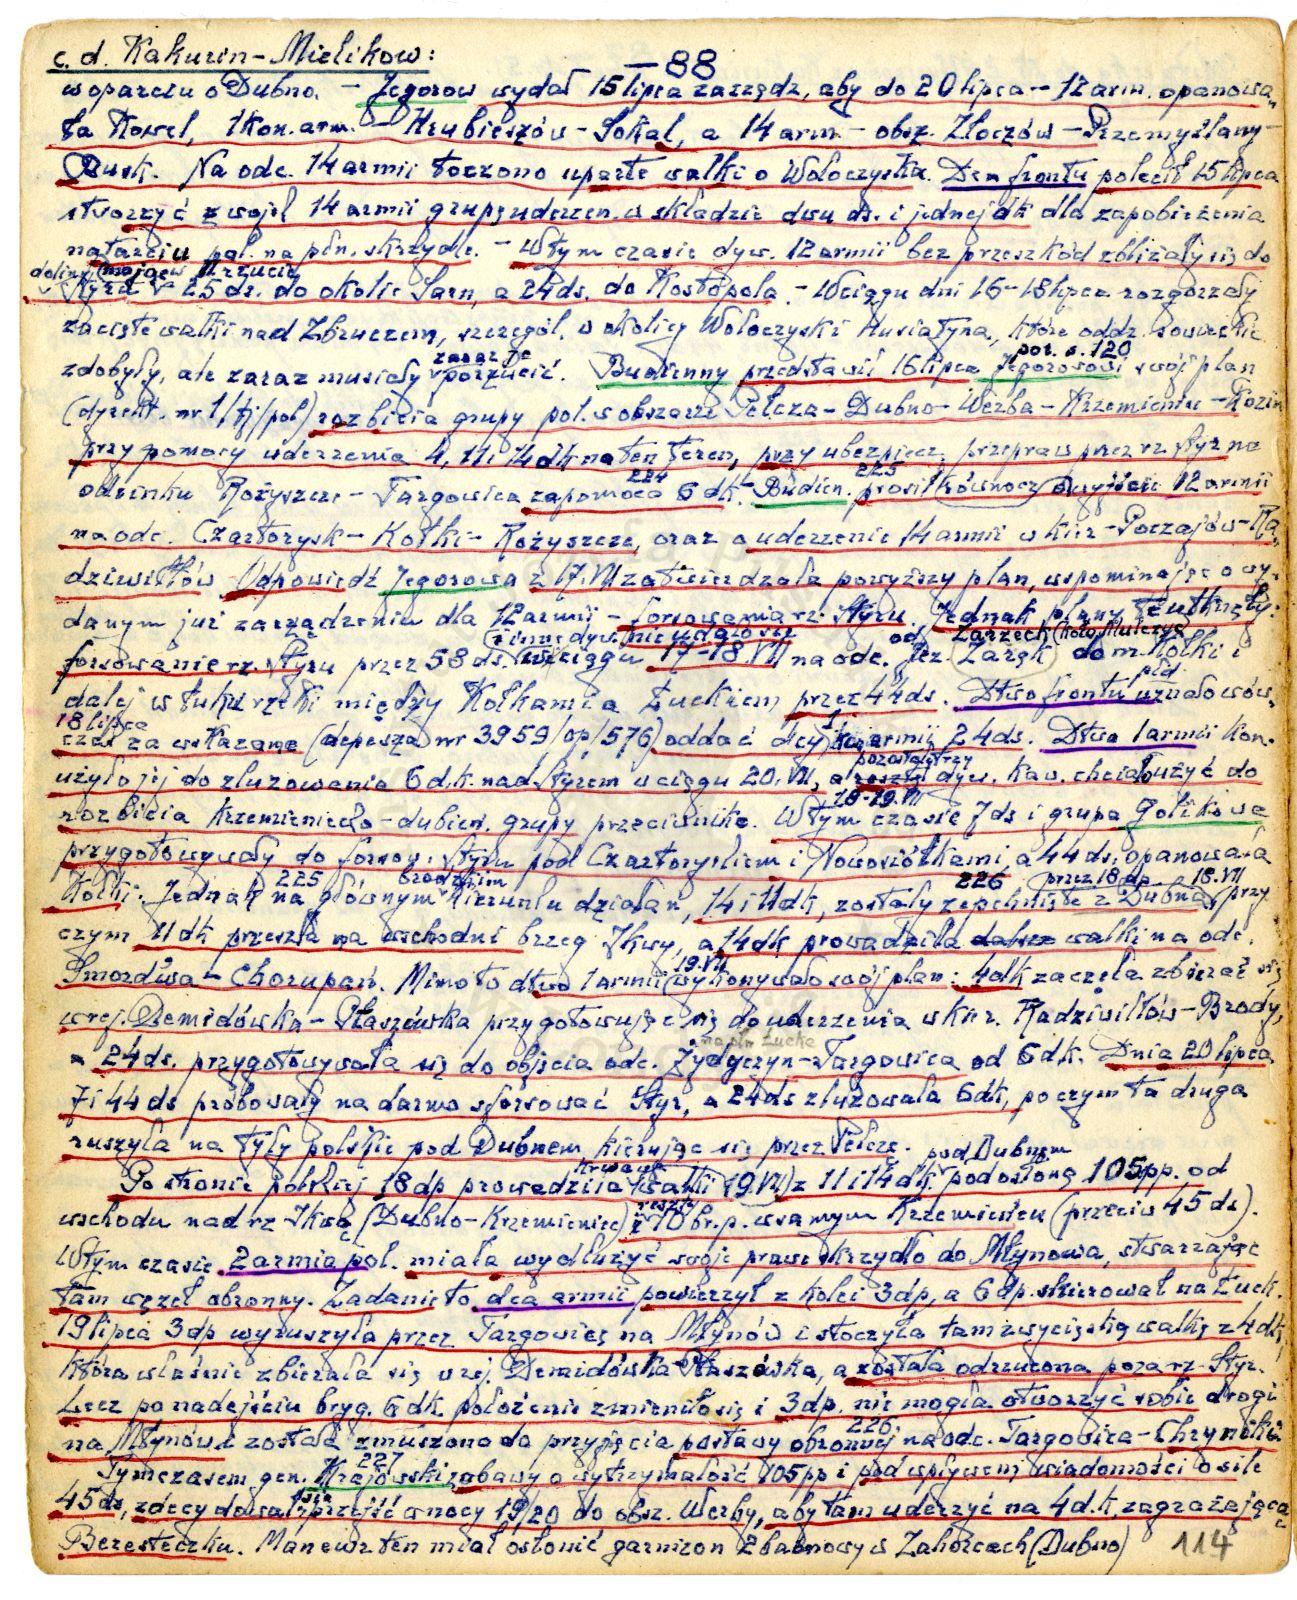 c. d. Kakurin-Mielikow:
— 88
w oparciu o Dubno. — Jegorow wydał 15 lipca zarządz, aby do 20 lipca — 12 arm. opanowa„
ła Kowel, 1 kon. arm. — Hrubieszów - Sokal, a 14 arm — obsz. Złoczów — Przemyślany -
Busk. Na odc. 14 armii toczono uparte walki o Wołoczyska. Dca frontu polecił 15 lipca
stworzyć z wojsk 14 armii grupę uderzen. w składzie dwu ds. i jednej dk dla zapobieżenia
natarciu pol. na płn. skrzydle. — W tym czasie dyw. 12 armii bez przeszkód zbliżały się do
doliny (mając w
Styru — 25 ds. do okolic Sarn, a 24 ds. do Kostopola. — W ciągu dni 16-18 lipca rozgorzały
zacięte walki nad Zbruczem, szczegól. w okolicy Wołoczyski Husiatyna, które oddz. sowieckie
zaraz je por. s. 120
zdobyły, ale zaraz musiały porzucić. Budienny przedstawił 16 lipca Jegorowowi swój plan
(dyrekt. nr 1/tj/pol) rozbicia grupy pol. w obszarze Pełcza - Dubno - Werba - Krzemieniec - Kozin
przy pomocy uderzenia 4, 11 i 14 dk na ten teren, przy ubezpiecz. przepraw przez rz. Styr na
224 225
odcinku Rożyszcze - Targowica zapomocą 6 dk. Budien. prosił równocz. 12 armii
na odc. Czartorysk - Kołki - Rożyszcze, oraz o uderzenie 14 armii w kier - Poczajów - Ra„
dziwiłłów. Odpowiedź Jegorowa z 17.VII zatwierdzała powyższy plan, wspominając o wy„
danym już zarządzeniu dla 12 armii — forsowania rz. Styru. Jednak plany te utknęły:
nie udało się od Zarzecz (koło Mulczyc)
forsowanie rz. Styru przez 58 ds. w ciągu 17-18 VII na odc. jez. Zarzk do m. Kołki i
dalej w łuku rzeki między Kołkami a Łuckiem przez 44 ds. Dtwo frontu uznało wów„
18 lipca
czas za wskazane (depesza nr 3959/op/576) oddać dcy 1 kon. armii 24 ds. Dtwo 1 armii kon.
pozostałe trzy
użyło jej do zluzowania 6 dk. nad Styrem w ciągu 20.VII, a resztę dyw. kaw. chciało użyć do
18-19.VII
rozbicia krzemieniecko - dubień. grupy przeciwnika. W tym czasie 7 ds i grupa Golikowa
przygotowywały do forsow. Styru pod Czartoryskiem i Nowosiółkami, a 44 ds. opanowała
225 brodzkim 226 przez 18 dp. 18.VII
Kołki. Jednak na głównym kierunku działań, 14 i 11 dk, zostały zepchnięte z Dubna, przy
czym 11 dk przeszła na wschodni brzeg Ikwy, a 14 dk prowadziła dalsze walki na odc.
19.VII
Smordwa - Chorupań. Mimo to dtwo 1 armii wykonywało swój plan: 4 dk zaczęła zbierać się
w rej. Demidówka - Płaszówka przygotowując się do uderzenia w kier. Radziwiłłów - Brody,
na płn Łucka
a 24 ds. przygotowywała się do objęcia odc. Żydyczyn - Targowica od 6 dk. Dnia 20 lipca
7 i 44 ds próbowały na darmo sforsować Styr, a 24 ds zluzowała 6 dk, po czym ta druga
ruszyła na tyły polskie pod Dubnem, kierując się przez Pełczę.
krwawe pod Dubnem
Po stronie polskiej 18 dp prowadziła walki 19.VII z 11 i 14 dk. pod osłoną 105 pp. od
resztę
wschodu nad rz Ikwą (Dubno - Krzemieniec) i 10 br. p. w samym Krzemieńcu (przeciw 45 ds).
W tym czasie 2 armia pol. miała wydłużyć swoje prawe skrzydło do Młynowa, stwarzając
tam węzeł obronny. Zadanie to dca armii powierzył z kolei 3 dp, a 6 dp. skierował na Łuck.
19 lipca 3 dp wyruszyła przez Targowicę na Młynów i stoczyła tam zwycięską walkę z 4 dk,
która właśnie zbierała się w rej. Demidówka Płaszówka, a została odrzucona poza rz. Styr.
Lecz po nadejściu bryg. 6 dk położenie zmieniło się i 3 dp. nie mogła otworzyć sobie drogi
226
na Młynów i została zmuszona do przyjęcia postawy obronnej na odc. Targowica -
227
Tymczasem gen. Krajowski, z obawy o wytrzymałość 105 pp i pod wpływem wiadomości o sile
45 ds, zdecydował się przejść w nocy 19/20 do obsz. Werby, aby tam uderzyć na 4 d.k. zagrażającą
Beresteczku. Manewr ten miał osłonić garnizon w Zahorcach (Dubno)
114